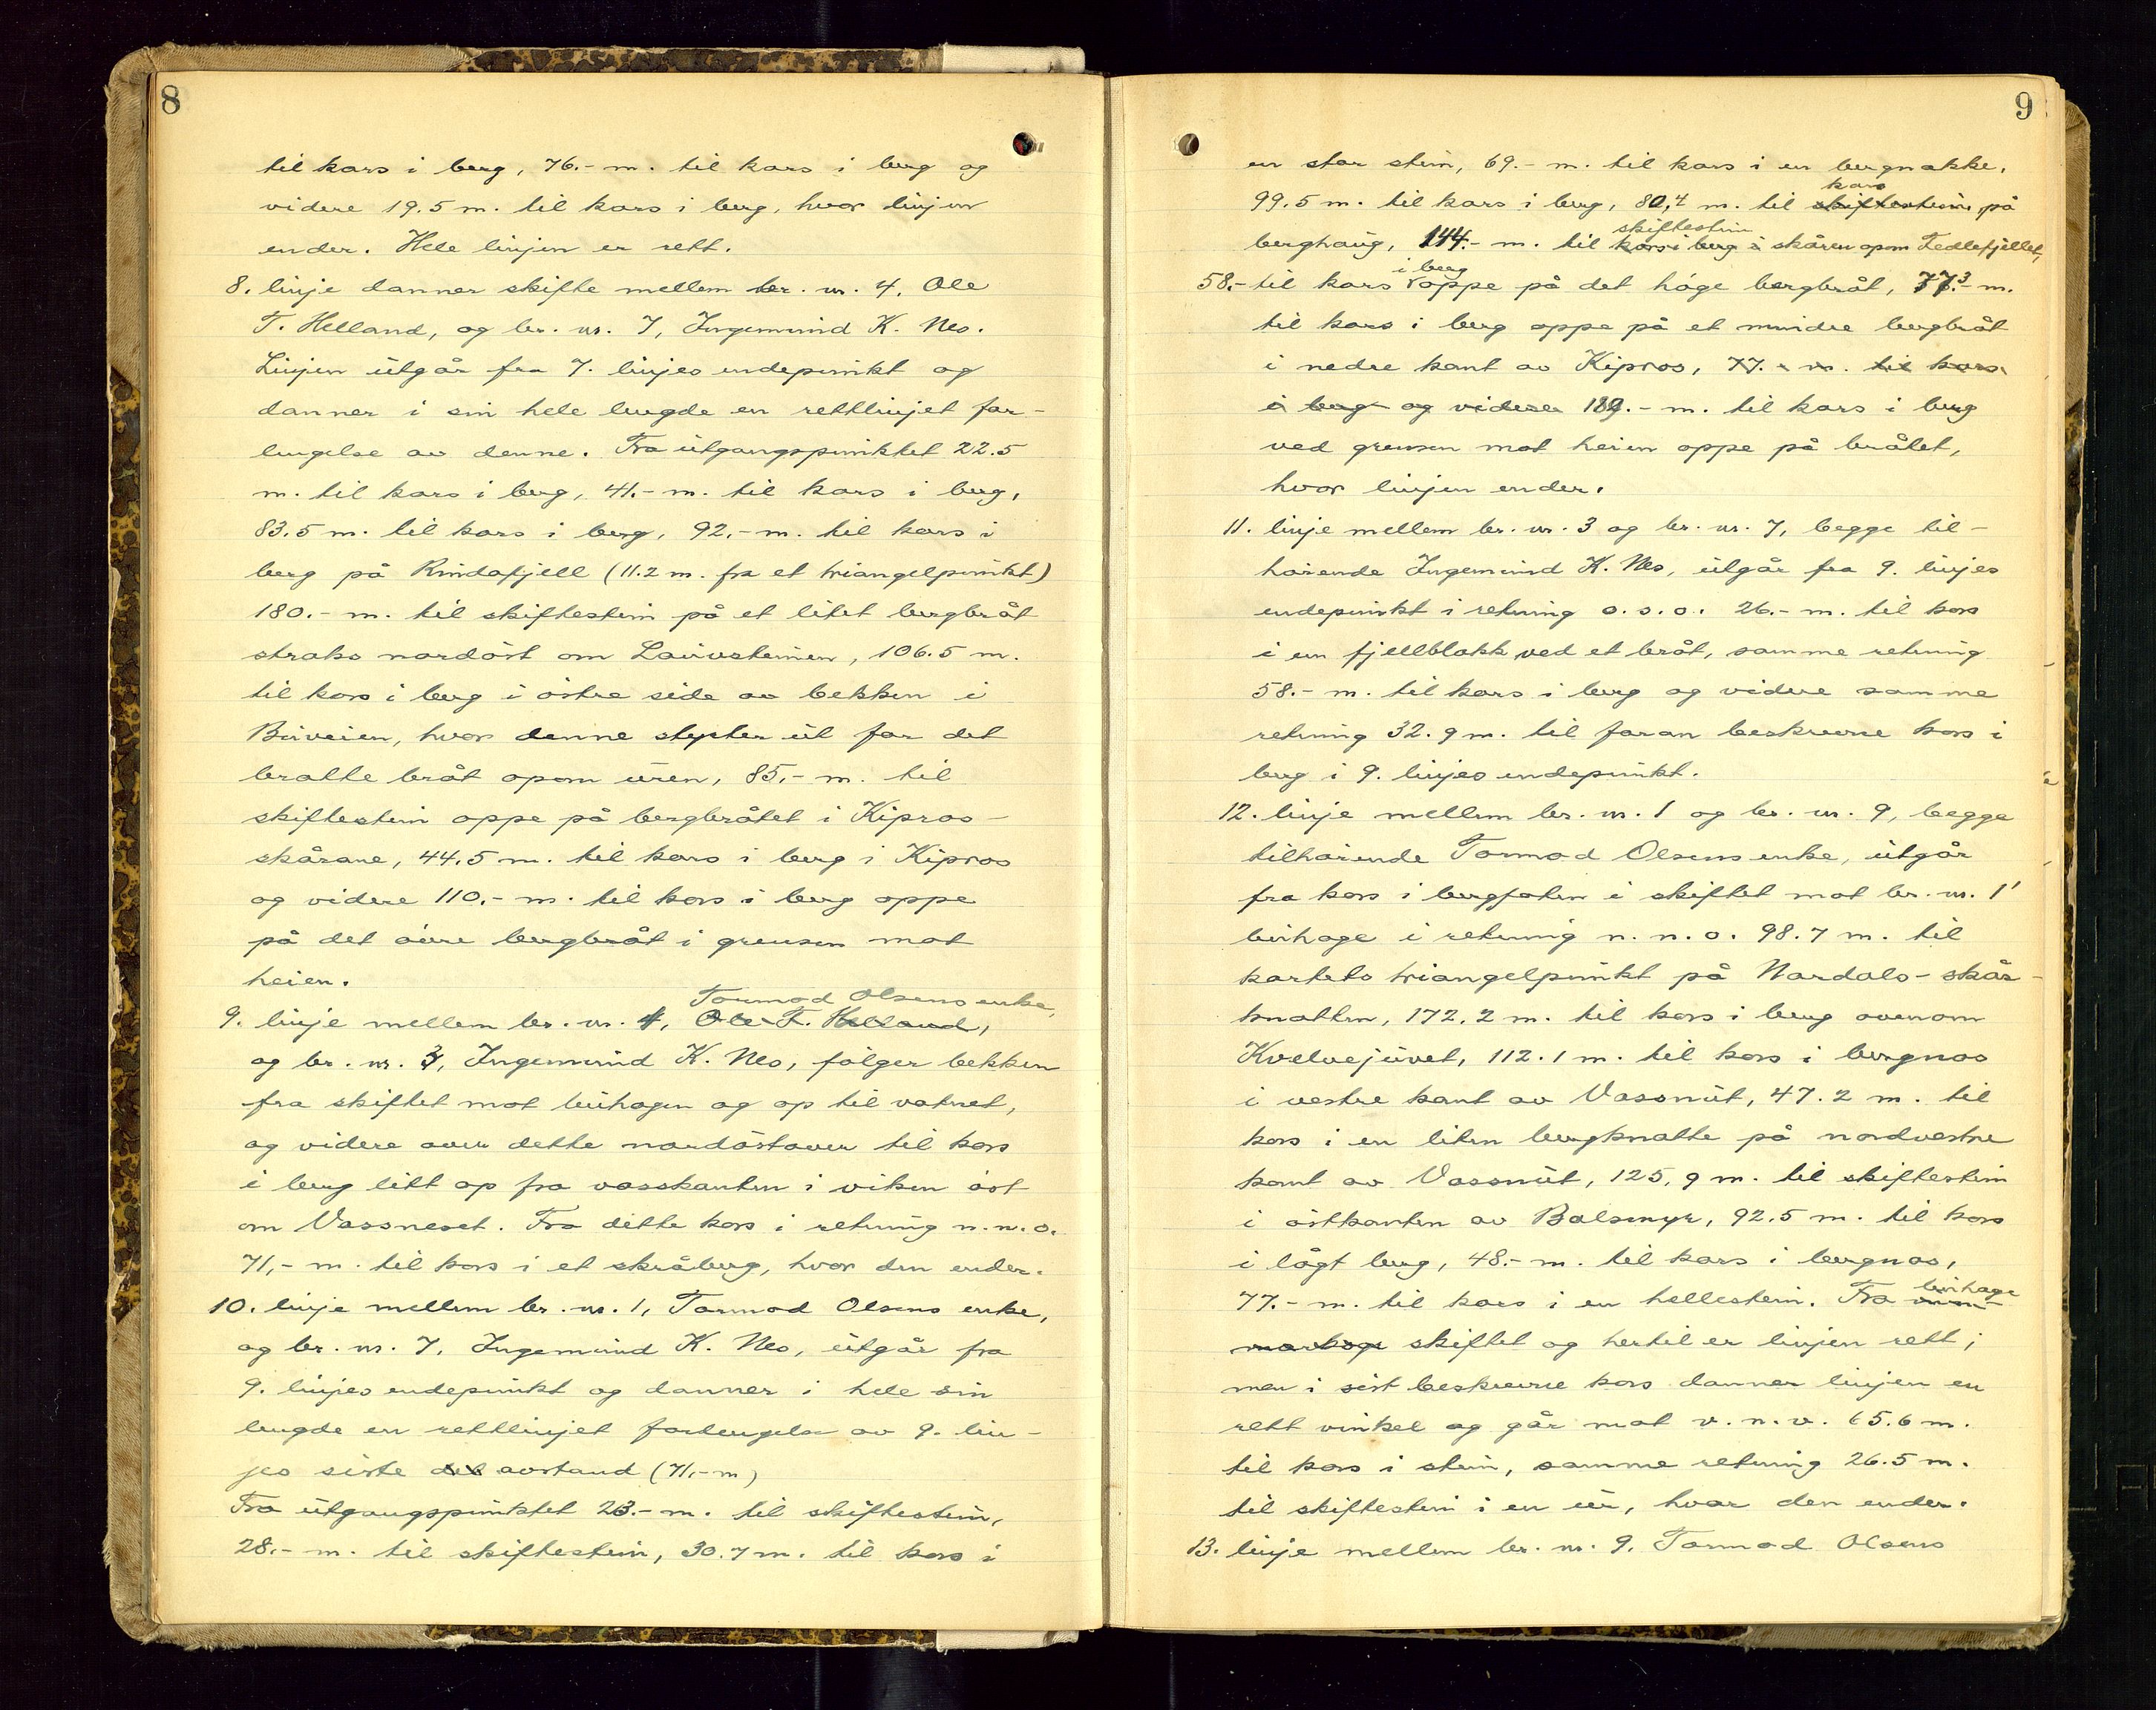 8
til kors i berg, 76.- m. til kors i berg og
videre 19.5 m. til kors i berg, hvor linjen
ender. Hele linjen er rett.
8. linje danner skifte mellem br. nr. 4, Ole
T. Helland, og br. nr. 7, Ingemund K. Nes.
Linjen utgår fra 7. linjes endepunkt og
danner i sin hele lengde en rettlinjet for-
lengelse av denne. Fra utgangspunktet 22.5
m. til kors i berg, 41.- m. til kors i berg,
83.5 m. til kors i berg, 92.- m. til kors i
berg på Rindafjell (11.2 m. fra et triangelpunkt)
180.- m. til skiftestein på et litet bergbråt
straks nordöst om Lauvsteinen, 106.5 m.
til kors i berg i östre side av bekken i
Buveien, hvor denne styrter ut for det
bratte bråt opom uren, 85.- m. til
skiftestein oppe på bergbråtet i Kipros-
skårane, 44.5 m. til kors i berg i Kipros
og videre 110.- m. til kors i berg oppe
på det övre bergbråt i grensen mot
heien.
Tormod Olsens enke,
9. linje mellem br. nr. 4, Ole T. Helland,
og br. nr. 3, Ingemund K. Nes, fölger bekken
fra skiftet mot buhagen og op til vatnet,
og videre over dette nordöstover til kors
i berg litt op fra vasskanten i viken öst
om Vassneset. Fra dette kors i retning n.n.o.
71,- m. til kors i et skråberg, hvor den ender.
10. linje mellem br. nr. 1, Tormod Olsens enke,
og br. nr. 7, Ingemund K. Nes, utgår fra
9. linjes endepunkt og danner i hele sin
lengde en rettlinjet forlengelse av 9. lin-
jes siste del avstand (71,- m)
Fra utgangspunktet 23.- m. til skiftestein,
28.- m. til skiftestein, 30.7 m. til kors i
9
en stor stein, 69.- m. til kors i en bergnakke,
kors
99.5 m. til kors i berg, 80,4 m. til skiftestein på
skiftestein
berghaug, 144.- m. til kors i berg i skåren opom Fedlefjellet,
i berg
58.- til kors oppe på det höge bergbråt, 77.3 m.
til kors i berg oppe på et mindre bergbråt
i nedre kant av Kipros, 77.- m. til kors
i berg og videre 189.- m. til kors i berg
ved grensen mot heien oppe på bråtet,
hvor linjen ender.
11. linje mellem br. nr. 3 og br. nr. 7, begge til-
hörende Ingemund K. Nes, utgår fra 9. linjes
endepunkt i retning o.s.o. 26.- m. til kors
i en fjellblokk ved et bråt, samme retning
58.- m. til kors i berg og videre samme
retning 32.9 m. til foran beskrevne kors i
berg i 9. linjes endepunkt.
12. linje mellem br. nr. 1 og br. nr. 9, begge
tilhörende Tormod Olsens enke, utgår
fra kors i bergfoten i skiftet mot br. nr. 1'
buhage i retning n.n.o. 98.7 m. til
kartets triangelpunkt på Nordals-skår-
knatten, 172.2 m. til kors i berg ovenom
Kvelvejuvet, 112.1 m. til kors i bergnos
i vestre kant av Vassnut, 47.2 m. til
kors i en liten bergknatte på nordvestre
kant av Vassnut, 125.9 m. til skiftestein
i östkanten av Balsmyr, 92.5 m. til kors
i lågt berg, 48.- m. til kors i bergnos,
buhage
77.- m. til kors i en hellestein. Fra
skiftet og hertil er linjen rett;
men i sist beskrevne kors danner linjen en
rett vinkel og går mot v.n.v. 65.6 m.
til kors i stein, samme retning 26.5 m.
til skiftestein i en ur, hvor den ender.
13. linje mellem br. nr. 9. Tormod Olsens